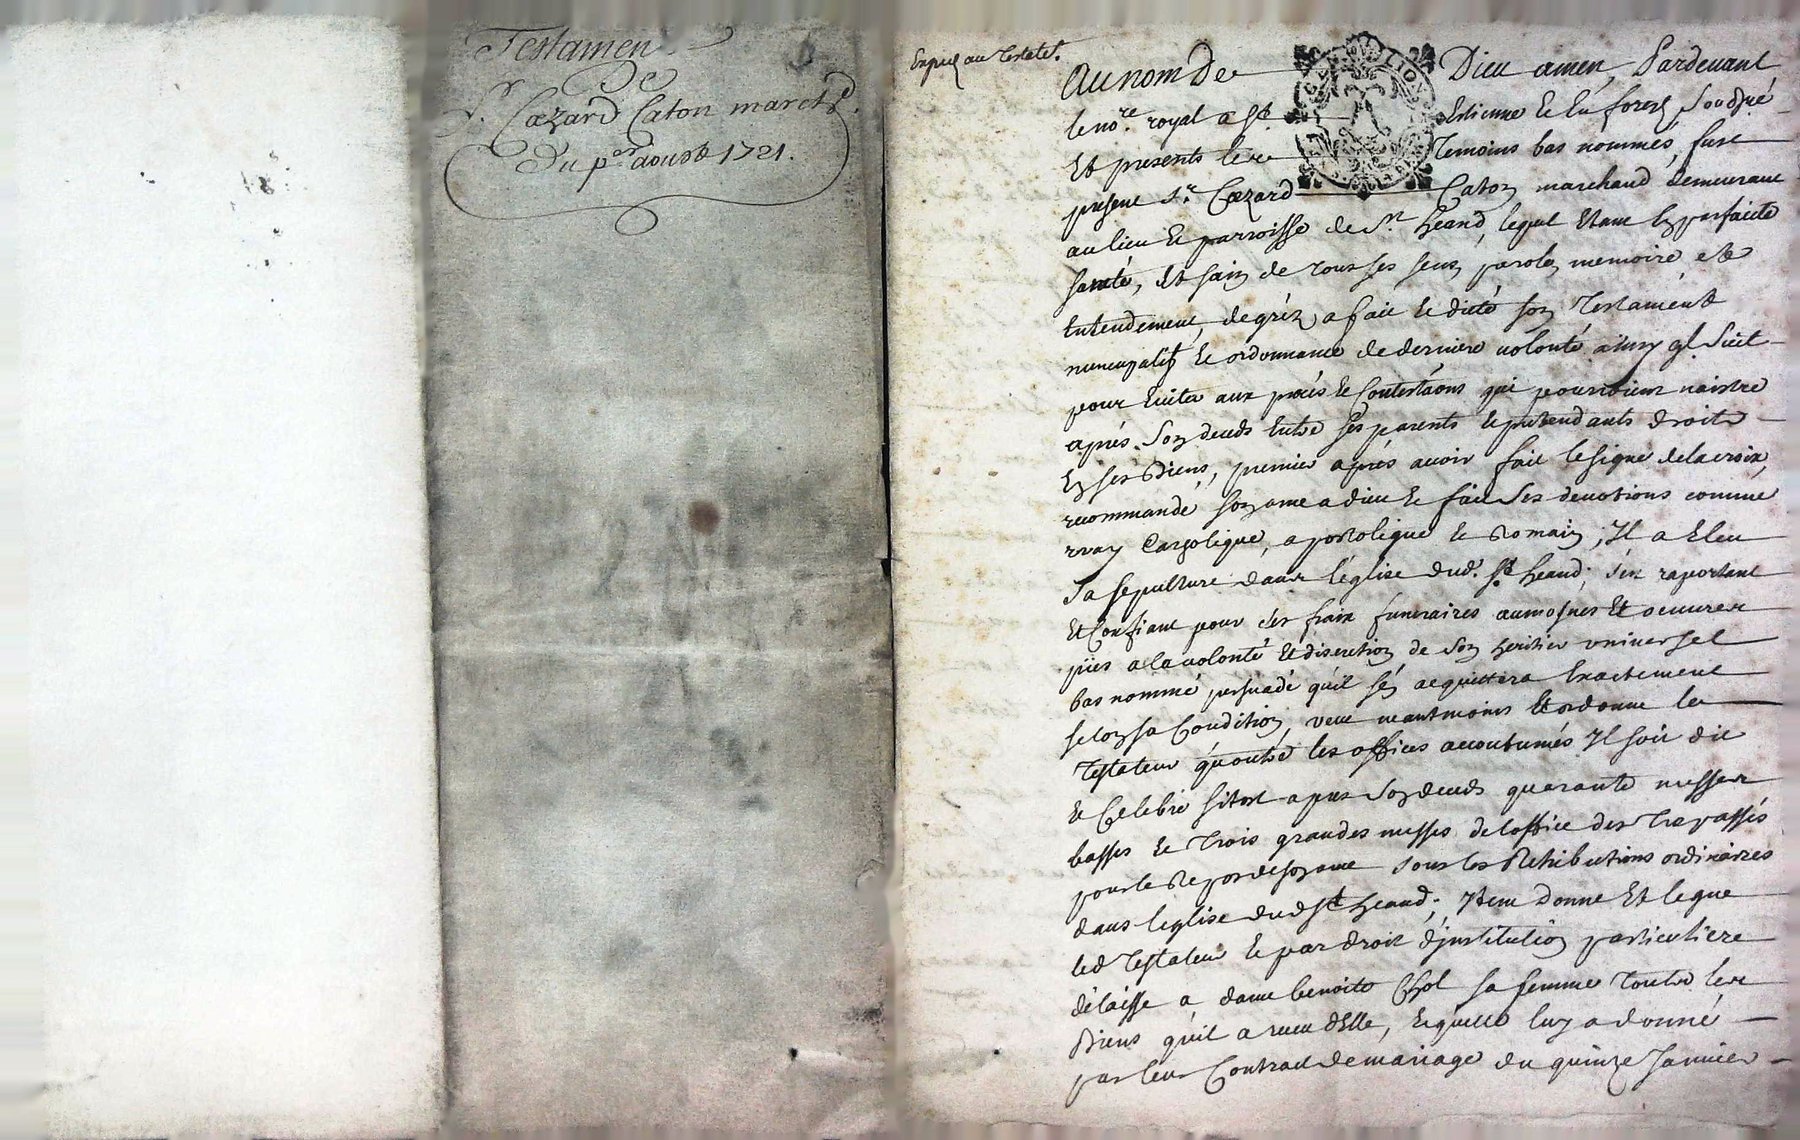 Testamen
De
Sr. Cæzard Caton march̄d.
Du per aoust 1721.
Expié au Testatr.
Au nom De Dieu amen, Pardevant
le nore. royal a St. Estienne de en forest soubzné
Et presents les Temoins bas nommés, fust
present sr. Cæzard Caton marchand demeurant
au lieu & parroisse de St. heand, lequel Etant En parfaite
santé, Et sain de tous ses sens, parole, memoire, et
Entendement, de gréz a fait & dicté son Testament
nuncupatif & ordonnance de derniere volonté ainsy q. suit
pour Eviter aux procés & Contestãons qui pourroient naistre
aprés son deceds Entre ses parents & pretendants droits
En ses Biens, premier aprés avoir fait le signe de la croix,
recommandé son ame a dieu & fait ses devotions comme
vray Catholique, apostolique & Romain; Il a Eleu
sa sepulture dans l'église dud. St. heand; s'en raportant
Et Confiant pour ses fraix funeraires aumosnes Et oeuvres
pies a la volonté & discretion de son heritier universel
bas nommé persuadé qu'il s'en acquittera Exactement
selon sa Condition, veut neantmoins & ordonne le
Testateur qu'outre les offices accoutumés Il soit dit
& Celebré sitost apres son deceds quarante messes
basses & Trois grandes messes de l'office des Trepassés
pour le Repos de son ame sous les Retributions ordinaires
dans l'eglise dud St. heand; Item Donne Et legue
led Testateur & par droit d'institution particuliere
délaisse a dame benoite Chol sa femme Toutes les
Biens qu'il a receu d'Elle, & qu'elle luy a donné
par leur Contract de mariage du quinze Janvier